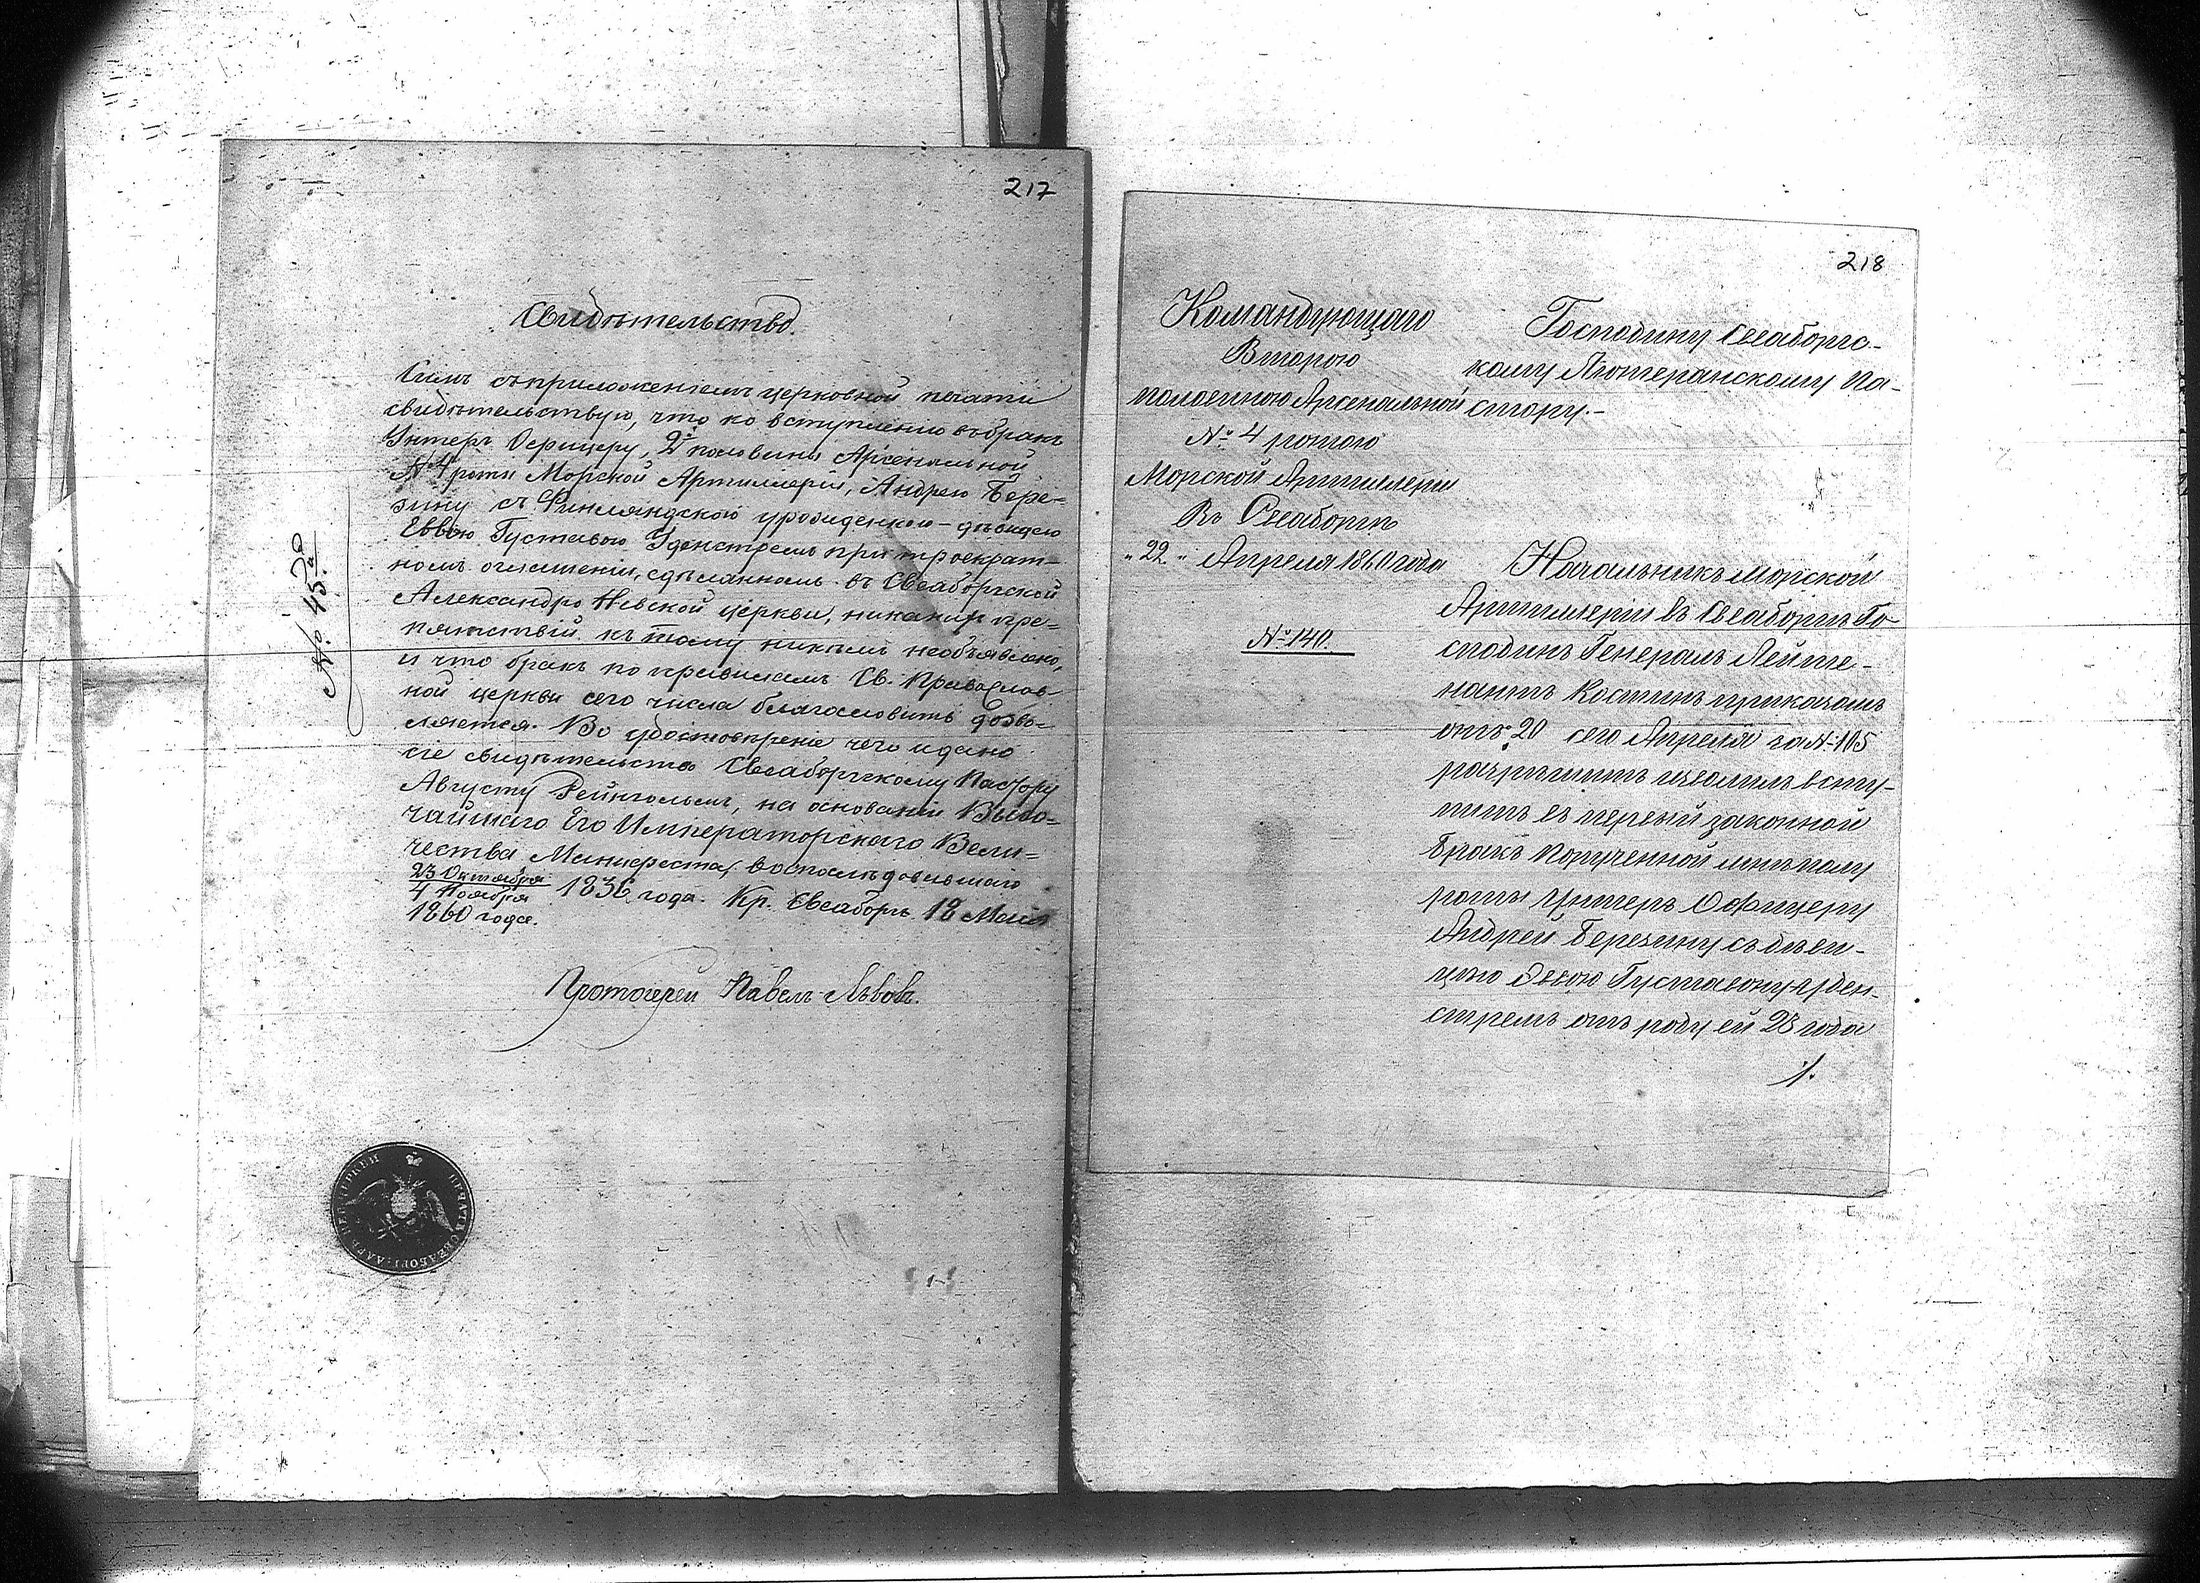 217
Свидѣтельство.
№ 45.й
Симъ съ приложеніемъ церковной печати
свидѣтельствую, что ко вступленію въ бракъ
Унтеръ Офицеру, 2й половины Арсенальной
№ 4 роты Морской Артиллеріи, Андрею Бере=
зину съ Финляндскою уроженкою - дѣвицею
Еввою Густавою Уденстремъ при троекрат-
номъ оглашеніи, сдѣланномъ въ Свеаборгской
Александро Невской церкви, никакихъ пре=
пятствій къ тому никѣмъ необъявлено,
и что бракъ по правиламъ Св. Православ-
ной церкви сего числа благословить дозво=
ляется. Во удостовѣреніе чего и дано
сіе свидѣтельство Свеаборгскому Пастору
Августу Рейнгольмъ, на основаніи Высо=
чайшаго Его Императорскаго Вели=
чества Манифеста, воспослѣдовавшаго
23 Октября
4 Ноября 1836 года. Кр. Свеаборгъ 18 Мая
1860 года.
Протоіерей Павелъ Львовъ.
218
Командующаго
Второю
половиною Арсенальной
№ 4 ротою
Морской Артиллеріи
Въ Свеаборгѣ
"22" Апреля 1860 года
№ 140.
Господину Свеаборгс-
кому Лютеранскому Па-
стору.-
Начальникъ Морской
Артиллеріи въ Свеаборгѣ Го-
сподинъ Генералъ Лейте-
нантъ Костинъ приказомъ
отъ 20 сего Апреля за № 105
разрѣшить изволилъ всту-
пить въ первый законной
бракъ порученной мнѣ полу
роты Унтеръ Офицеру
Андрей Березину съ дѣви-
цею Эвою Густавою Уден-
стремъ отъ роду ей 23 года
./.